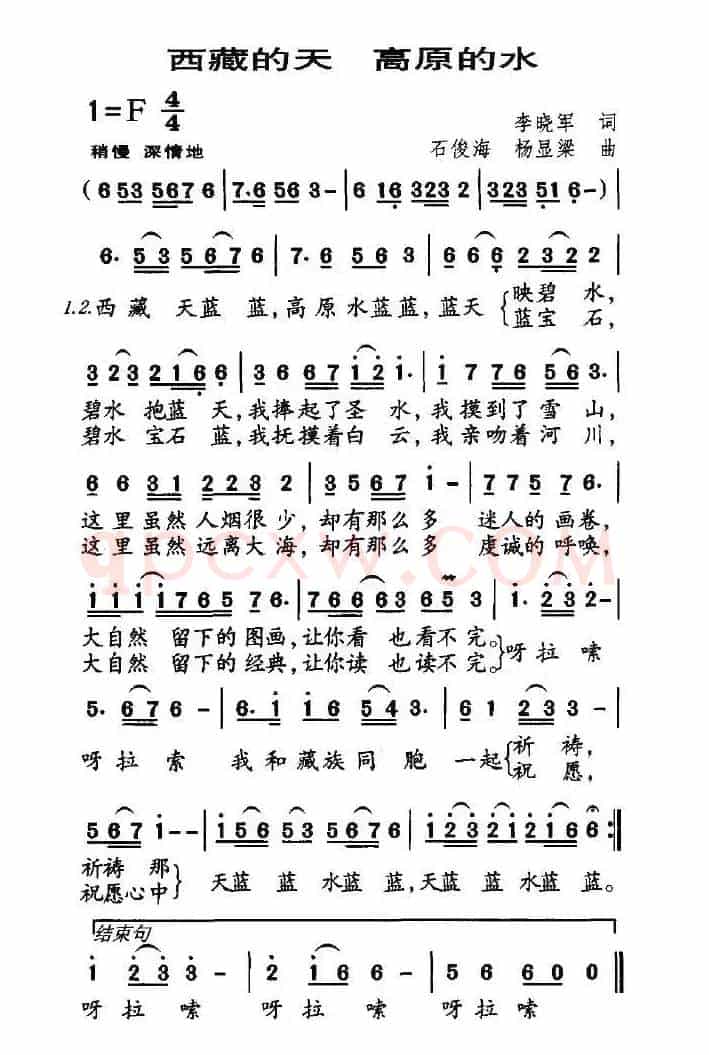 西藏的天 高原的水
1=F 4/4
李晓军 词
稍慢 深情地
石俊海 杨显梁 曲
(6 53 5676 | 7·6 56 3- | 6 16 323 2 | 323 51 6-)
6· 53 5676 | 7· 6 56 3 | 6 6 6 6 232 2
1.2.西藏 天蓝 蓝,高原水蓝蓝,蓝天{映碧 水,
蓝宝 石,
3 23 2166 | 36 67 12 1· | 1 776 56 3·
碧水 抱蓝 天,我捧起了圣 水,我摸到了雪 山,
碧水 宝石 蓝,我抚摸着白 云,我亲吻着河 川,
6 6 31 223 2 | 3567 1- | 775 76·
这里虽然人烟很少,却有那么多 迷人的画卷,
这里虽然远离大海,却有那么多 虔诚的呼唤,
111 1765 76· | 7666 3653 | 1· 23 2-
大自然 留下的图画,让你看 也看不完。}呀拉 嗦
大自然 留下的经典,让你读 也读不完。
5· 676- | 6· 1 16 543· | 61 233-
呀拉 索 我和藏族同 胞 一起{祈 祷,
祝 愿,
567 1-- | 156 53 5676 | 123 21 2166 :||
祈祷 那}天蓝 蓝 水蓝 蓝,天蓝 蓝 水蓝 蓝。
祝愿心中
结束句
1 23 3- | 2 16 6- | 56 6 0 0 ||
呀拉 嗦 呀拉 嗦 呀拉嗦
qpcxw.COM